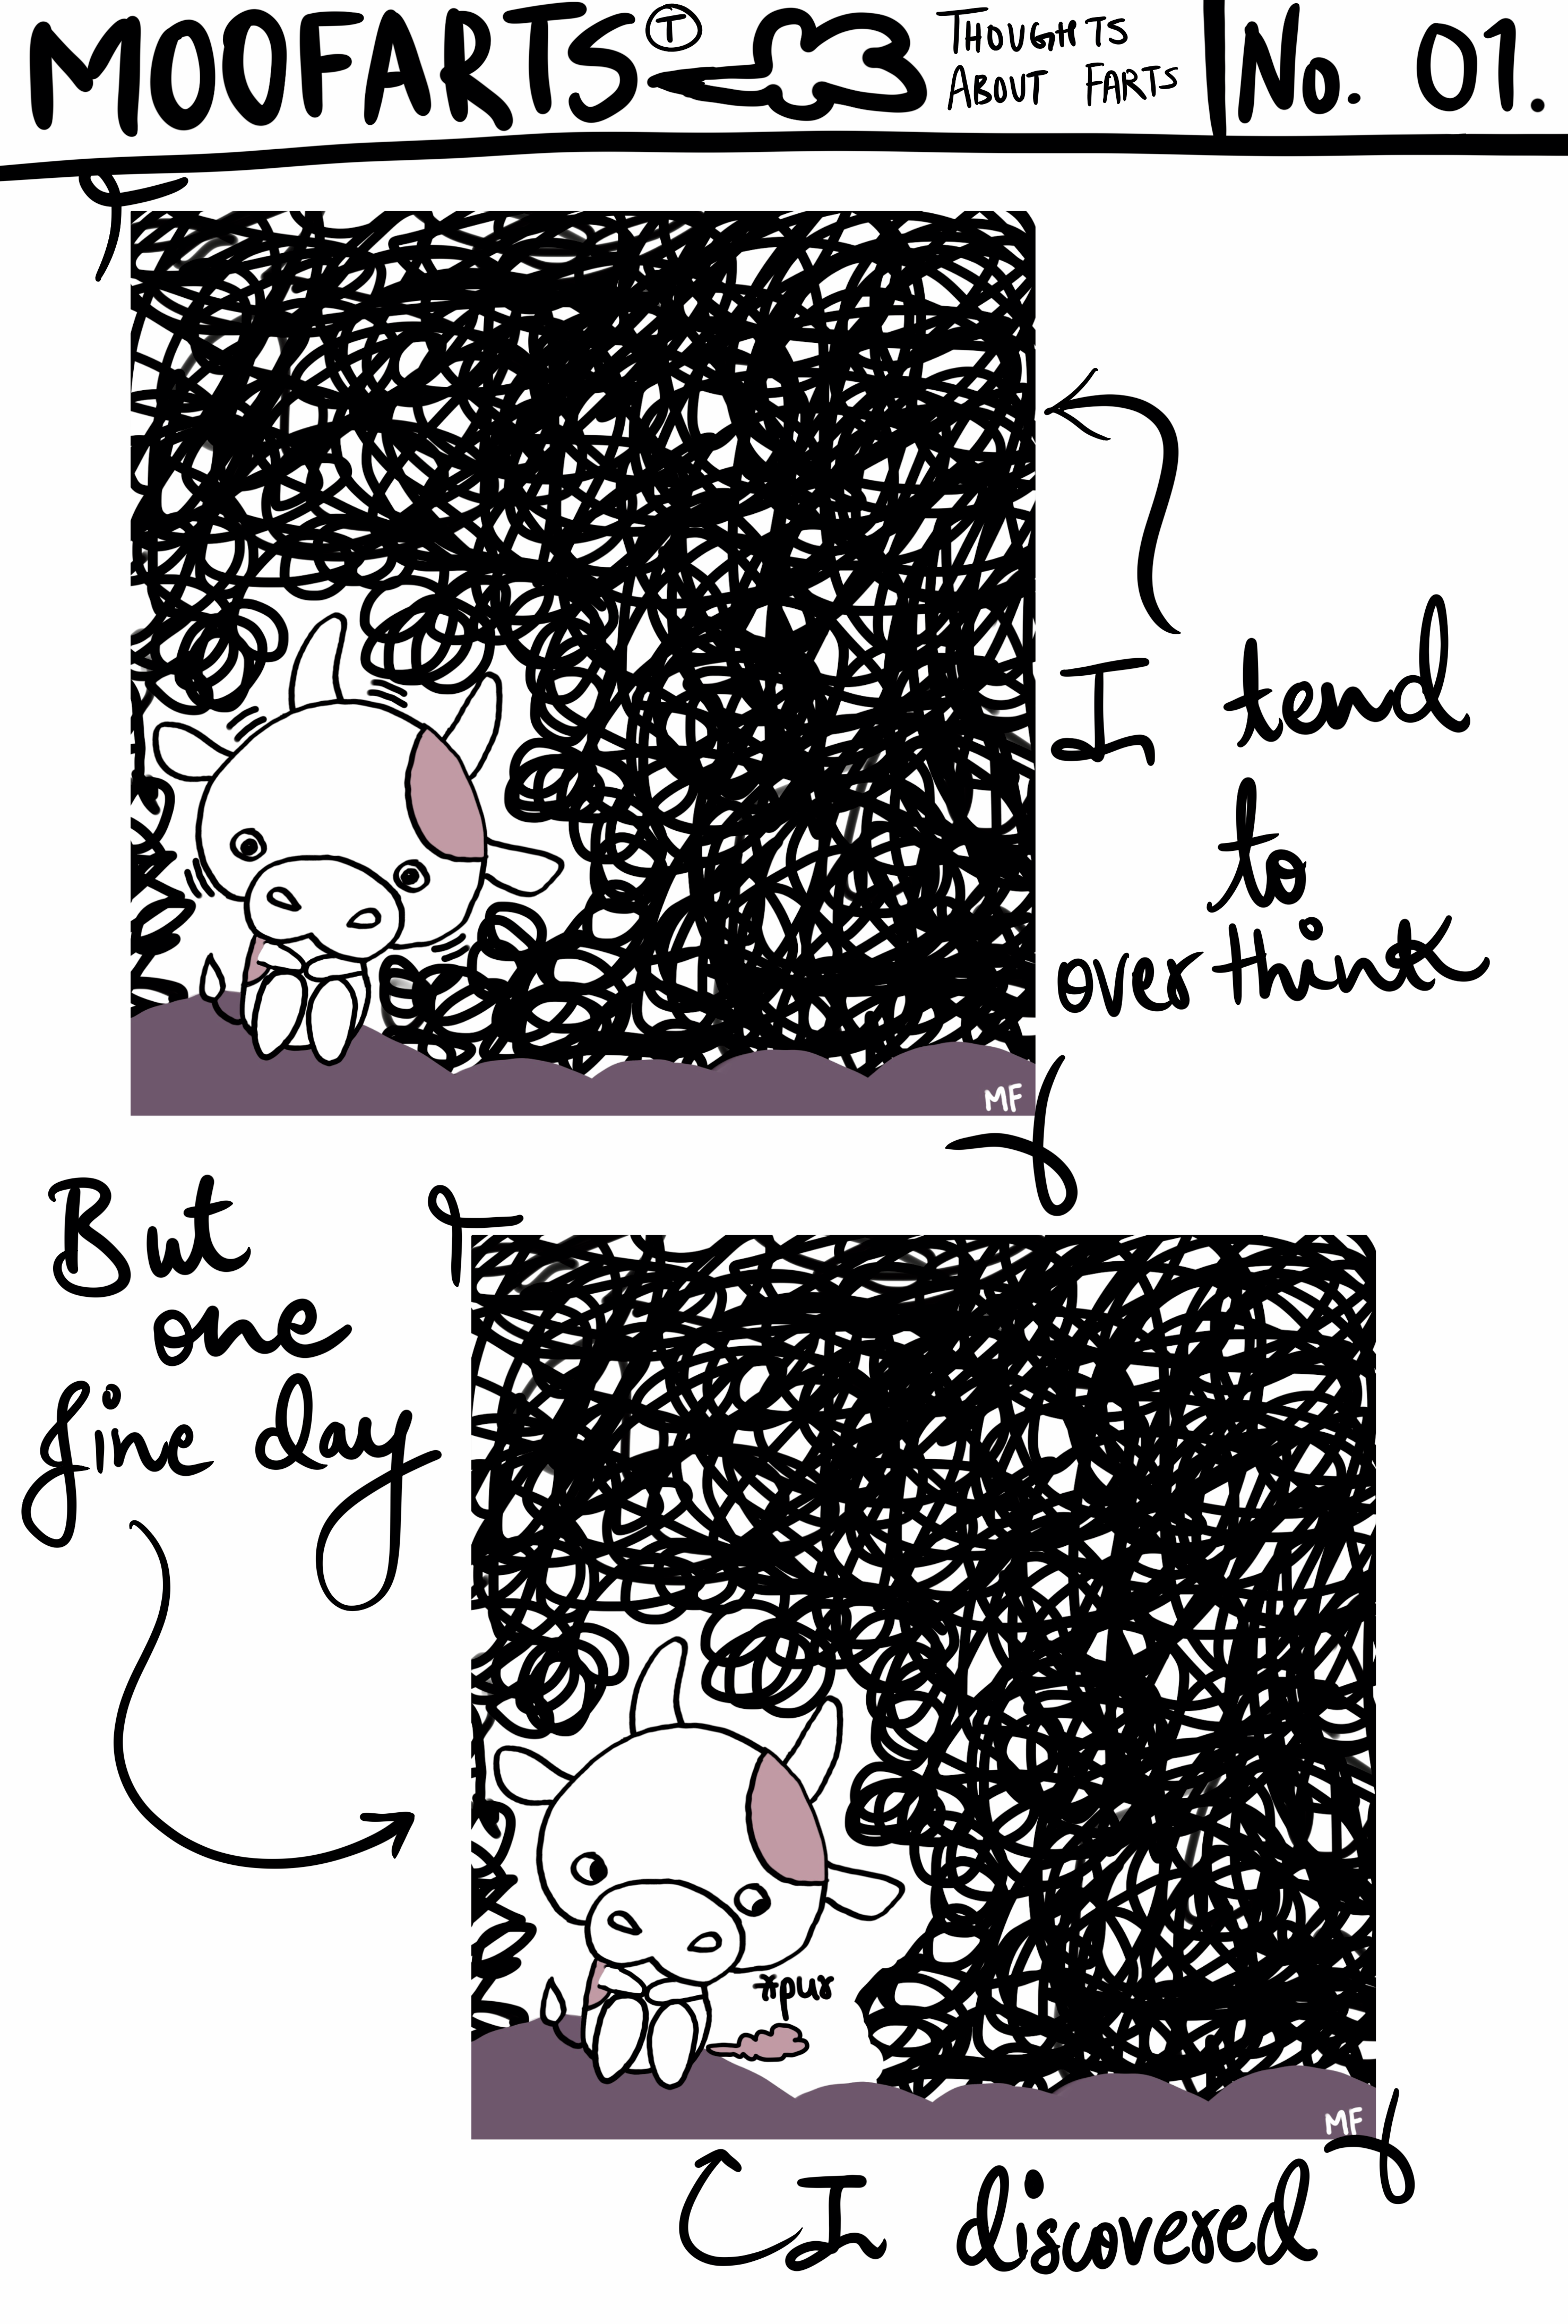 MOOFARTS Ⓣ
THOUGHTS
ABOUT FARTS
No. 01.
I tend
to
over think
MF
But
one
fine day
*pur
MF
I discovered